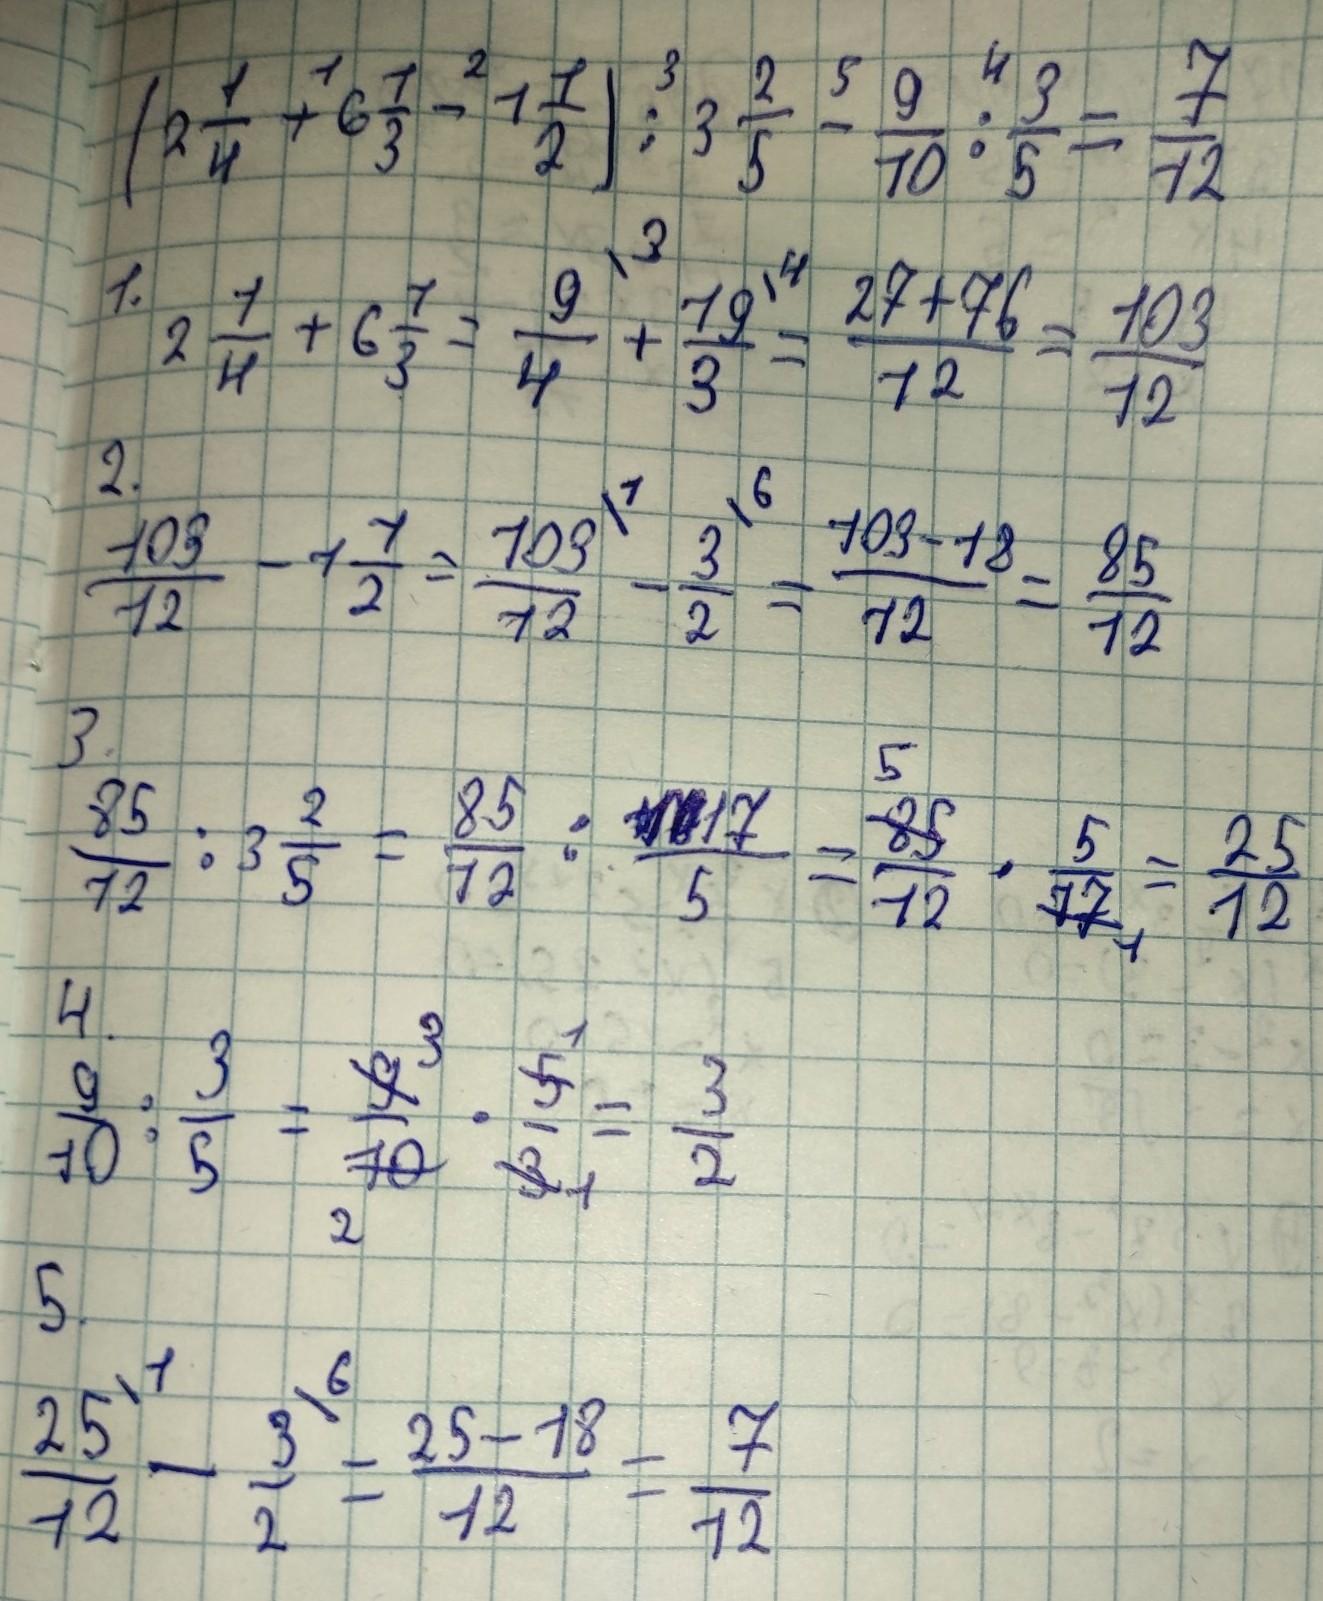 (2 1/4 +¹ 6 1/3 -² 1 1/2) :³ 3 2/5 -⁵ 9/10 :⁴ 3/5 = 7/12
1. 2 1/4 + 6 1/3 = 9/4 \3 + 19/3 \4 = 27+76/12 = 103/12
2.
103/12 - 1 1/2 = 103/12 \1 - 3/2 \6 = 103-18/12 = 85/12
3.
85/12 : 3 2/5 = 85/12 : 17/5 = 85/12 5 · 5/17 1 = 25/12
4.
9/10 : 3/5 = 9/10 3 2 · 5/3 1 1 = 3/2
5.
25/12 \1 - 3/2 \6 = 25-18/12 = 7/12